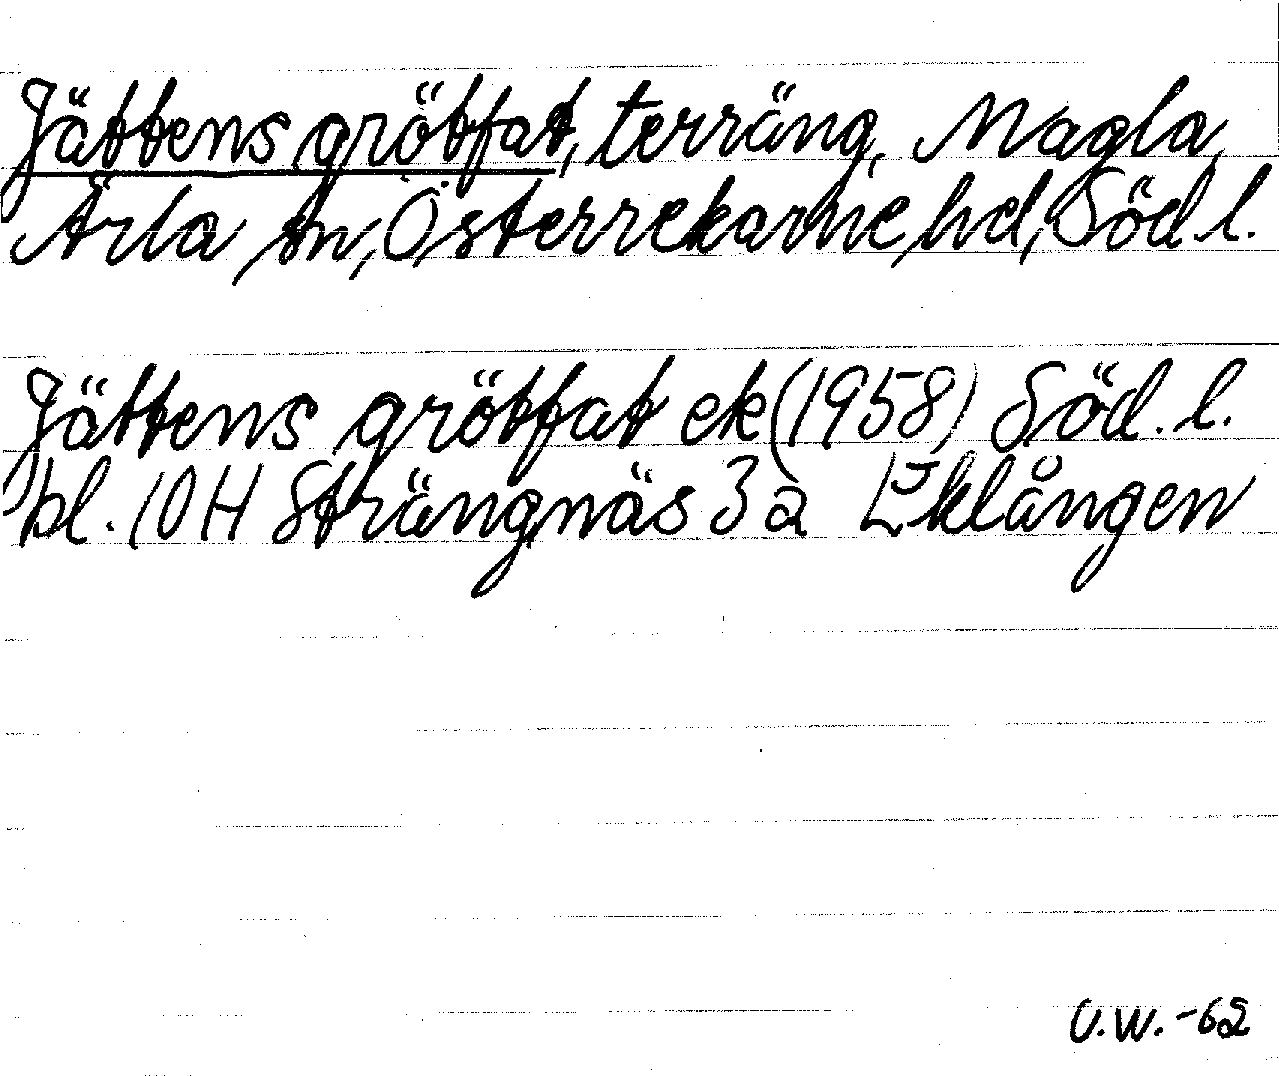 Jättens grötfat, terräng, Magla,
Ärla sn, Österrekarne hd, Söd l.
Jättens grötfat ek (1958) Söd. l.
bl. 10H Strängnäs 3 a Eklången
U.W. -62